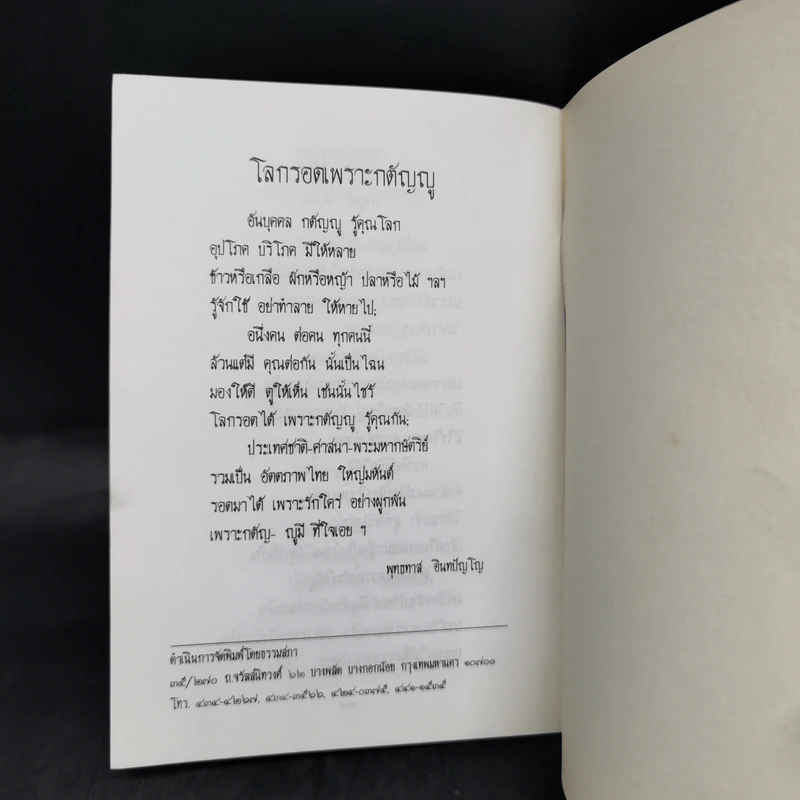 โลกรอดเพราะกตัญญู
อันบุคคล กตัญญู รู้คุณโลก
อุปโภค บริโภค มีให้หลาย
ข้าวหรือเกลือ ผักหรือหญ้า ปลาหรือไม้ ฯลฯ
รู้จักใช้ อย่าทำลาย ให้หายไป;
อนึ่งคน ต่อคน ทุกคนนี้
ล้วนแต่มี คุณต่อกัน นั้นเป็นไฉน
มองให้ดี ดูให้เห็น เช่นนั้นไซร้
โลกรอดได้ เพราะกตัญญู รู้คุณกัน;
ประเทศชาติ-ศาสนา-พระมหากษัตริย์
รวมเป็น อัตตภาพไทย ใหญ่มหันต์
รอดมาได้ เพราะรักใคร่ อย่างผูกพัน
เพราะกตัญ- ญูมี ที่ใจเอย ฯ
พุทธทาส อินทปัญโญ
ดำเนินการจัดพิมพ์โดยธรรมสภา
๓๕/๒๗๐ ถ.จรัลสนิทวงศ์ ๖๒ บางพลัด บางกอกน้อย กรุงเทพมหานคร ๑๐๗๐๐
โทร. ๔๓๔-๔๒๖๗, ๔๓๔-๓๕๖๖, ๔๒๔-๐๓๗๕, ๔๔๑-๑๕๓๕